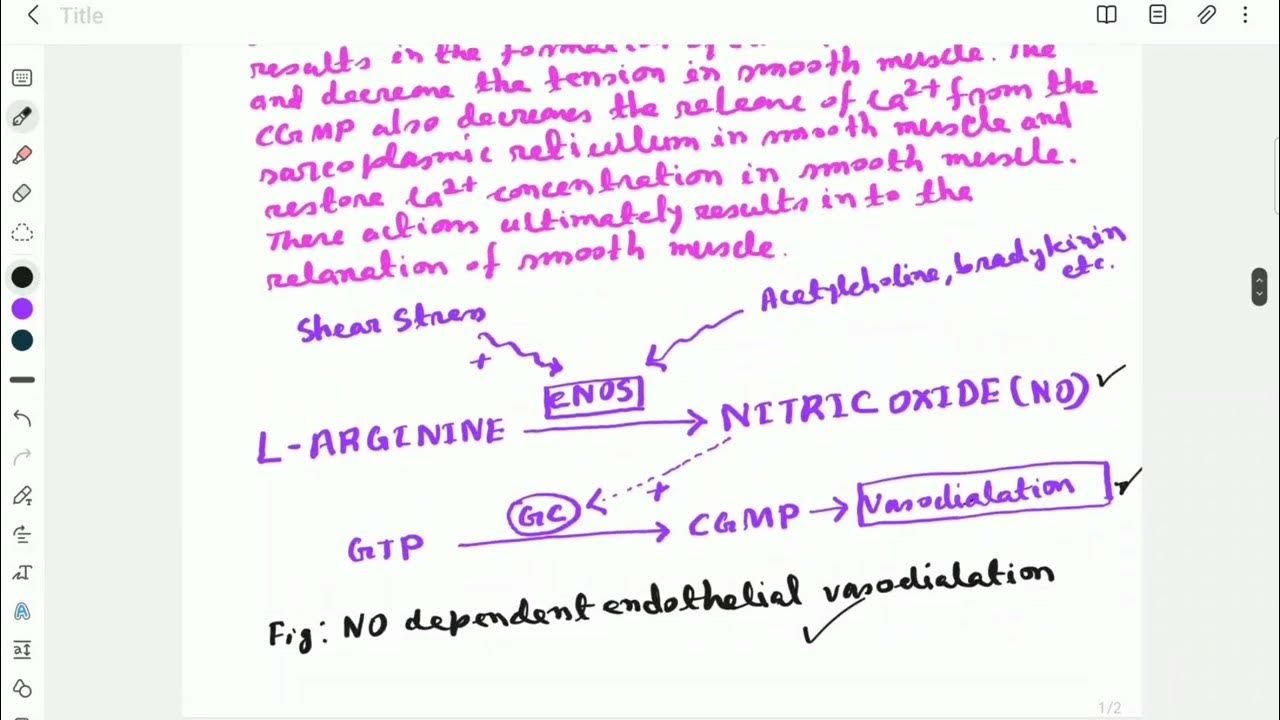 Title
results in the
and decrease the tension in smooth muscle. The
CGMP also decreases the release of Ca2+ from the
sarcoplasmic reticullum in smooth muscle and
restore Ca2+ concentration in smooth muscle.
These actions ultimately results in to the
relanation of smooth muscle.
Shear Stress
Acetylcholine, bradykinin
etc.
+
eNOS
L-ARGININE
NITRIC OXIDE (NO)
+
GC
GTP
CGMP
Vasodialation
Fig: NO dependent endothelial vasodialation
1/2